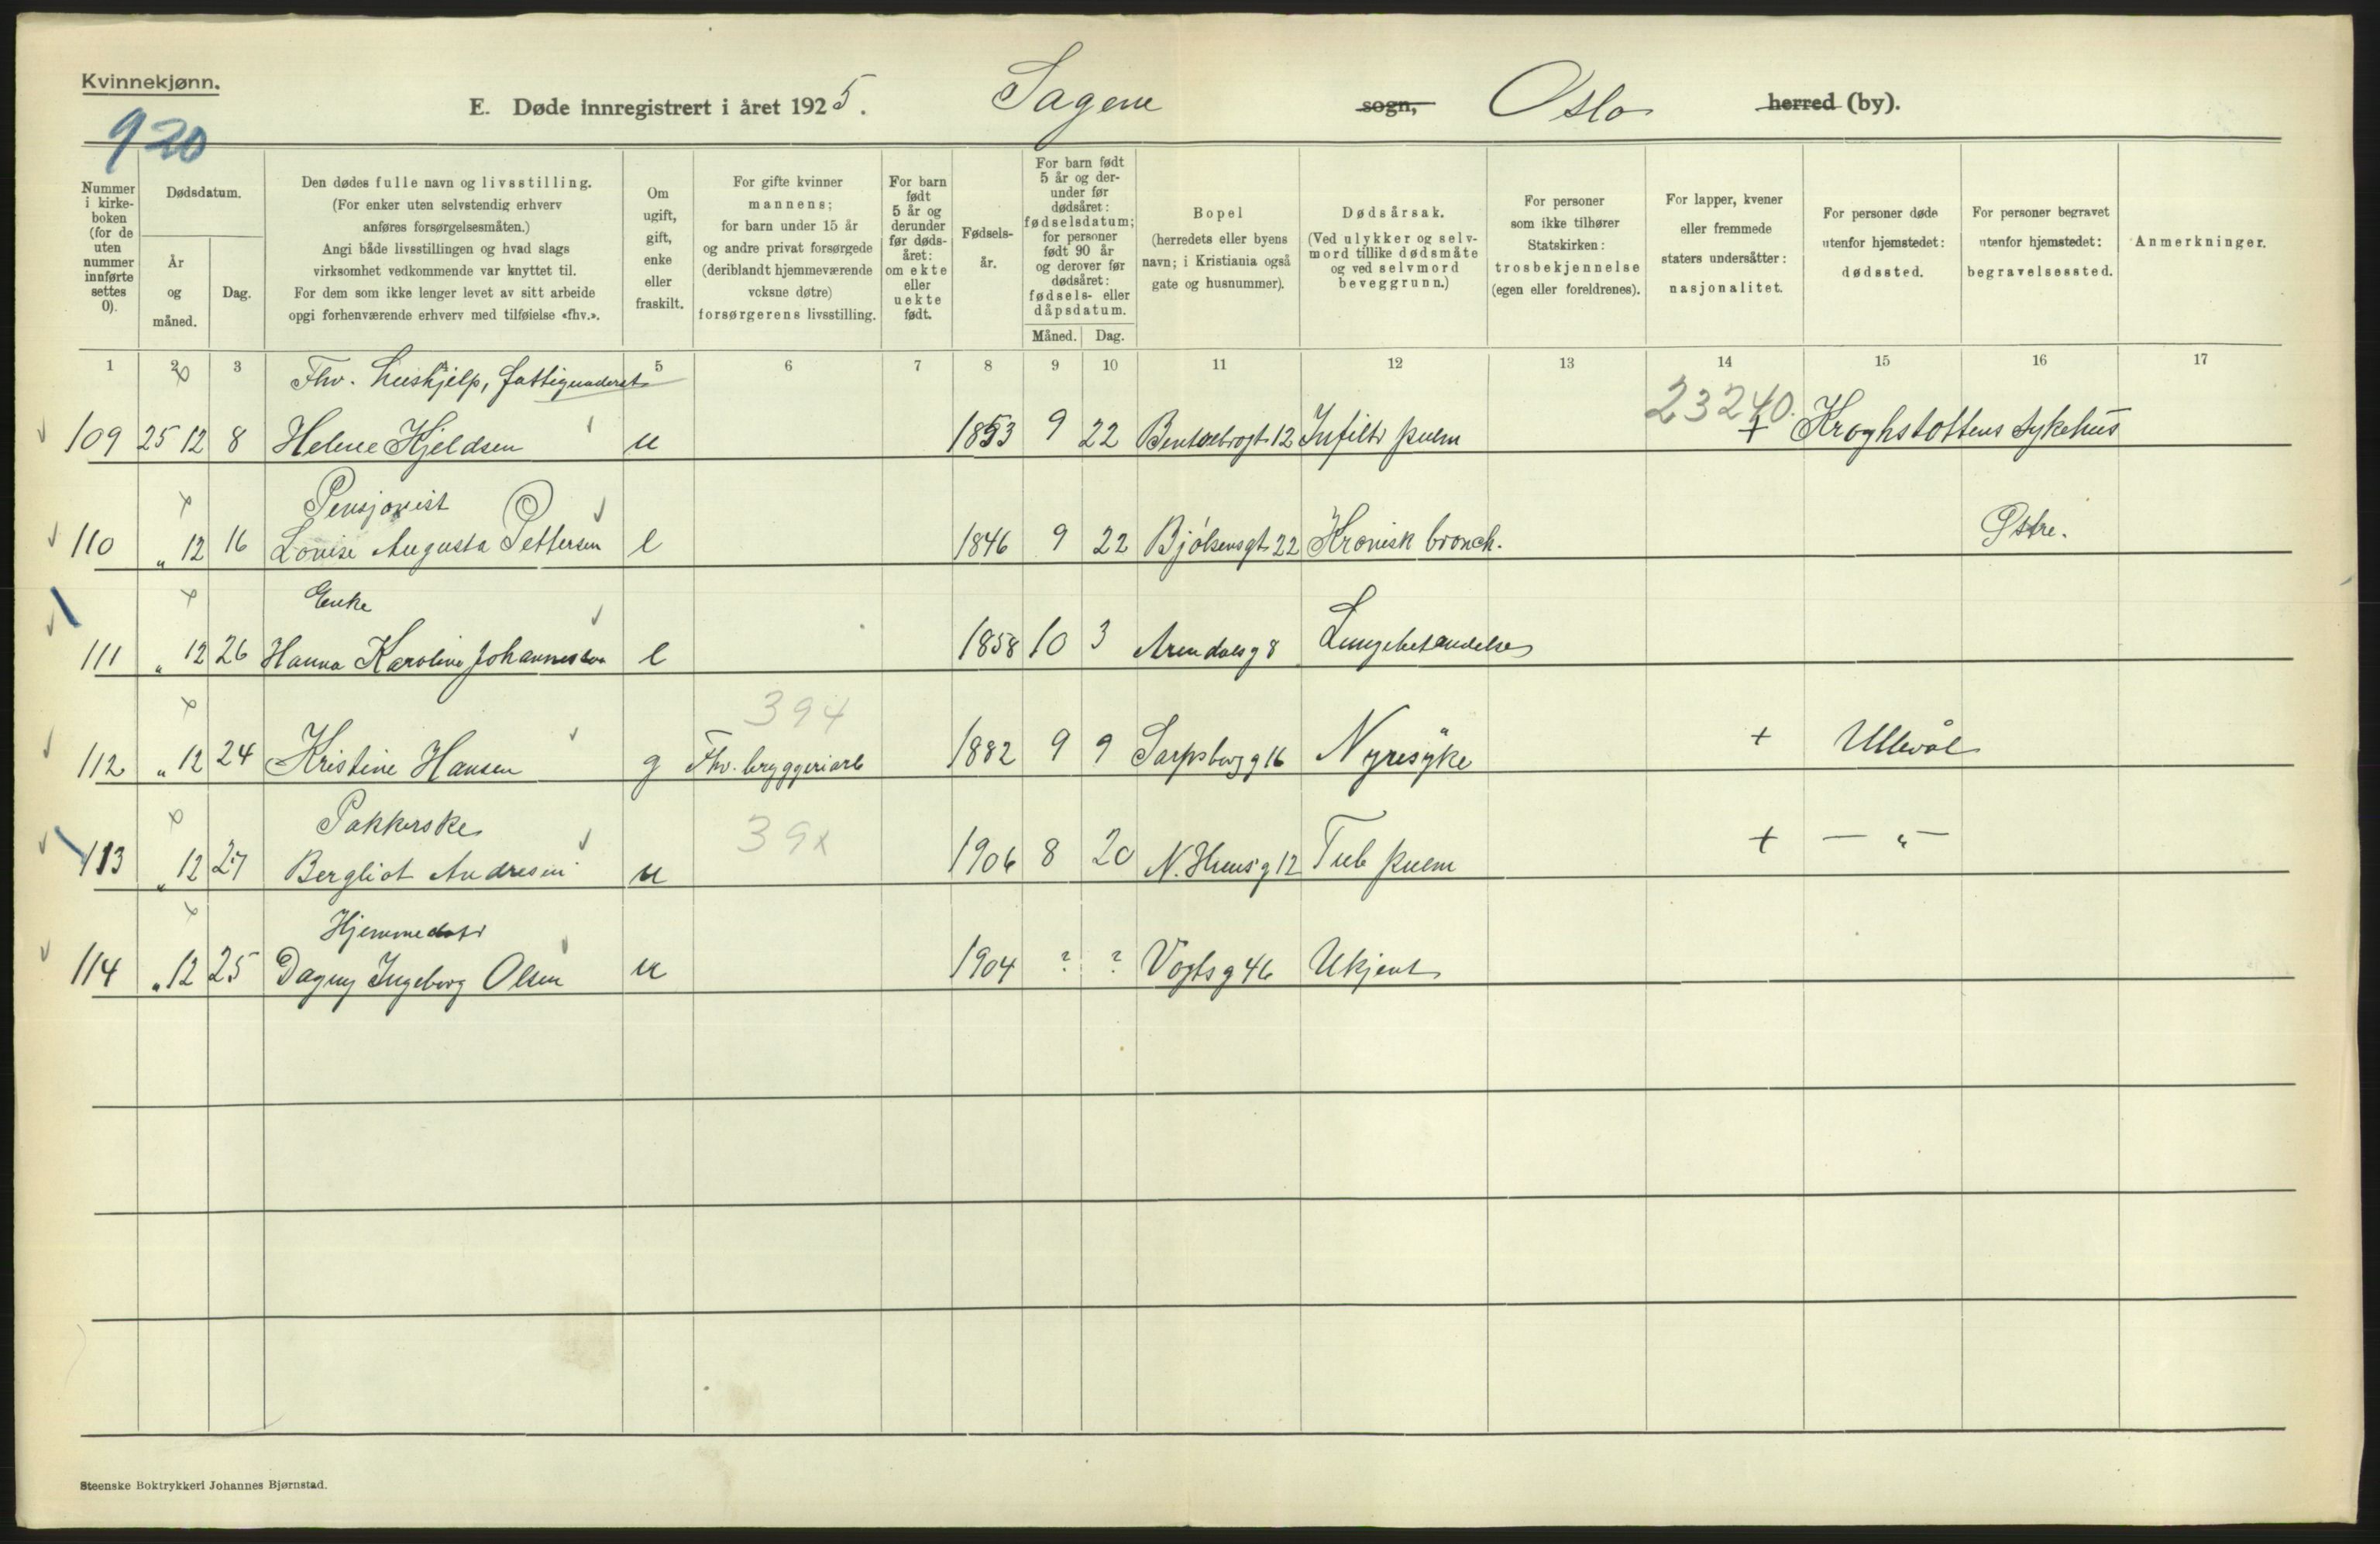 Kvinnekjønn.
E. Døde innregistrert i året 1925. Sagene sogn, Oslo herred (by).
920
Nummer i kirkeboken (for de uten nummer innførte settes 0).
Dødsdatum.
År og måned.
Dag.
Den dødes fulle navn og livsstilling.
(For enker uten selvstendig erhverv
anføres forsørgelsesmåten.)
Angi både livsstillingen og hvad slags
virksomhet vedkommende var knyttet til.
For dem som ikke lenger levet av sitt arbeide
opgi forhenværende erhverv med tilføielse «fhv.».
Om ugift, gift, enke eller fraskilt.
For gifte kvinner
mannens;
for barn under 15 år
og andre privat forsørgede
(deriblandt hjemmeværende
voksne døtre)
forsørgerens livsstilling.
For barn født 5 år og derunder før dødsåret: om ekte eller uekte født.
Fødselsår.
For barn født 5 år og derunder før dødsåret: fødselsdatum; for personer født 90 år og derover før dødsåret: fødsels- eller dåpsdatum.
Måned. Dag.
Bopel
(herredets eller byens
navn; i Kristiania også
gate og husnummer).
Dødsårsak.
(Ved ulykker og selvmord tillike dødsmåte og ved selvmord beveggrunn.)
For personer
som ikke tilhører
Statskirken:
trosbekjennelse
(egen eller foreldrenes).
For lapper, kvener
eller fremmede
staters undersåtter:
nasjonalitet.
For personer døde
utenfor hjemstedet:
dødssted.
For personer begravet
utenfor hjemstedet:
begravelsessted.
Anmerkninger.
1 2 3 5 6 7 8 9 10 11 12 13 14 15 16 17
Fhv. hushjelp, fattigunderst
23240.
109 25 12 8 Helene Kjeldsen u 1853 9 22 Bentsebrogt 12 Infiltr pulm + Kroghstøttens sykehus
Pensjonist
110 " 12 16 Lovise Augusta Pettersen e 1846 9 22 Bjølsensgt 22 Kronisk bronch. Østre.
Enke
111 " 12 26 Hanna Karoline Johannessen e 1858 10 3 Arendalsg 8 Lungebetendelse
394
112 " 12 24 Kristine Hansen g Fhv. bryggeriarb 1882 9 9 Sarpsborg g 16 Nyresyke + Ullevål
Pakkerske
39x
113 " 12 27 Bergliot Andresen u 1906 8 20 N. Huusg 12 Tub pulm + — " —
Hjemmedatr
114 " 12 25 Dagny Ingeborg Olsen u 1904 ? ? Vogtsg 46 Ukjent
Steenske Boktrykkeri Johannes Bjørnstad.